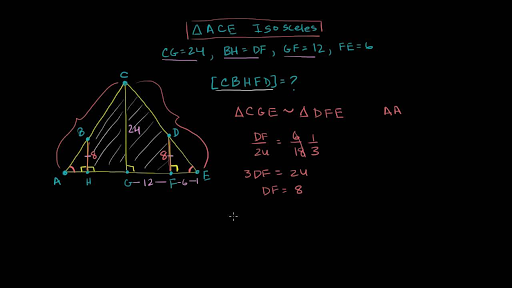 △ACE Isosceles
CG=24, BH=DF, GF=12, FE=6
[CBHFD]=?
△CGE ~ △DFE AA
DF/24 = 6/18 1/3
3DF = 24
DF = 8
C
B
D
24
8
8
A H G 12 F 6 E